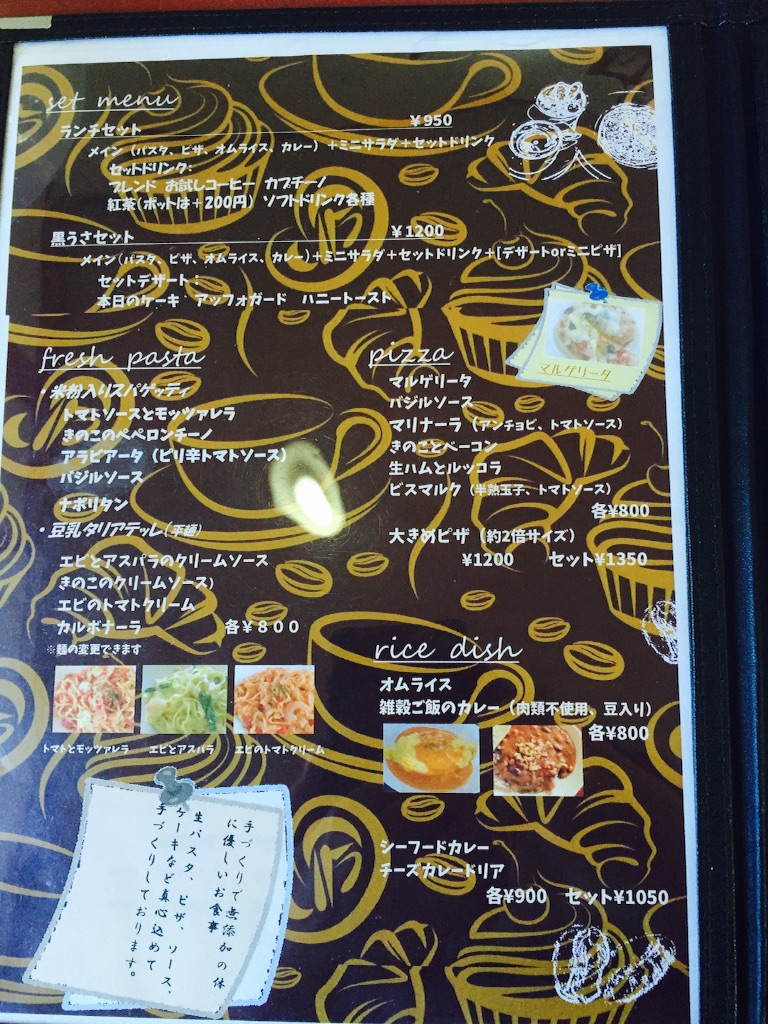 set menu
ランチセット ¥950
メイン（パスタ、ピザ、オムライス、カレー）＋ミニサラダ＋セットドリンク
セットドリンク：
ブレンド お試しコーヒー カプチーノ
紅茶（ポットは＋200円） ソフトドリンク各種
黒うさセット ¥1200
メイン（パスタ、ピザ、オムライス、カレー）＋ミニサラダ＋セットドリンク＋[デザートorミニピザ]
セットデザート：
本日のケーキ アッフォガード ハニートースト
fresh pasta
・米粉入りスパゲッティ
トマトソースとモッツァレラ
きのこのペペロンチーノ
アラビアータ（ピリ辛トマトソース）
バジルソース
ナポリタン
・豆乳タリアテッレ（平麺）
エビとアスパラのクリームソース
きのこのクリームソース）
エビのトマトクリーム
カルボナーラ 各￥８００
※麺の変更できます
トマトとモッツァレラ エビとアスパラ エビのトマトクリーム
手づくりで無添加の体
に優しいお食事
生パスタ、ピザ、ソース、
ケーキなど真心込めて
手づくりしております。
pizza
マルゲリータ
マルゲリータ
バジルソース
マリナーラ（アンチョビ、トマトソース）
きのことベーコン
生ハムとルッコラ
ビスマルク（半熟玉子、トマトソース）
各¥800
大きめピザ（約2倍サイズ）
¥1200 セット¥1350
rice dish
オムライス
雑穀ご飯のカレー（肉類不使用、豆入り）
各¥800
シーフードカレー
チーズカレードリア
各¥900 セット¥1050